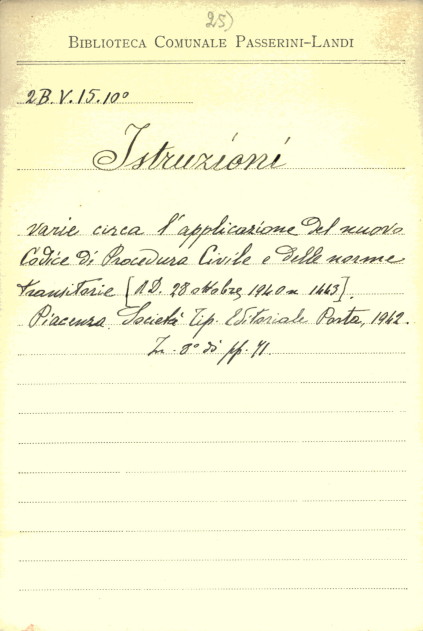 25)
BIBLIOTECA COMUNALE PASSERINI-LANDI
2B.V.15.10°
Istruzioni
varie circa l'applicazione del nuovo
Codice di Procedura Civile e delle norme
transitorie [R.D. 28 ottobre 1940 n 1443].
Piacenza. Società Tip. Editoriale Porta, 1942.
In 8° di pp. 71.